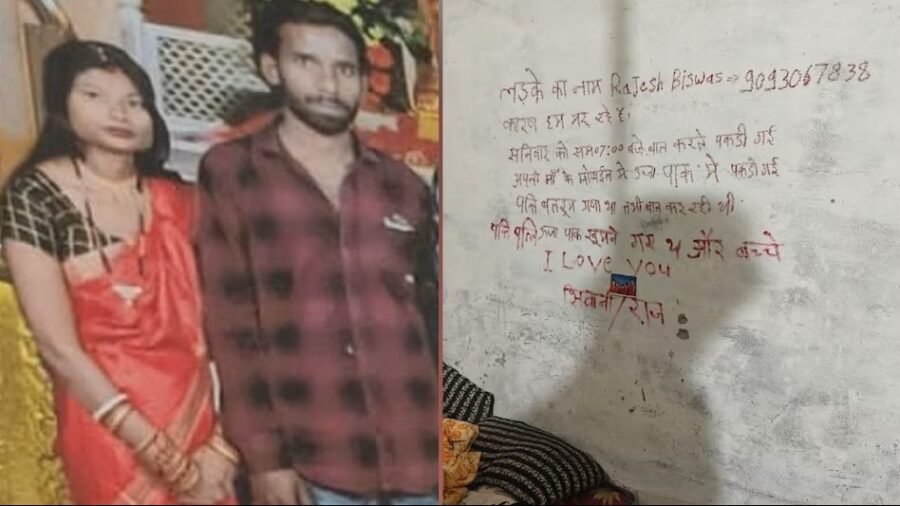 लड़के का नाम Rajesh Biswas => 9093067838
कारण हम मर रहे हैं।
सनिवार को सम07:00 बजे बात करते पकडी गई
अपनी माँ के मोबाईल से उषा पाक में पकडी गई
पति बातरूम गया था तभी बात कर रही थी
पति पत्नि पाक घुमने गए थ और बच्चे
I Love You
शिवानी/राज